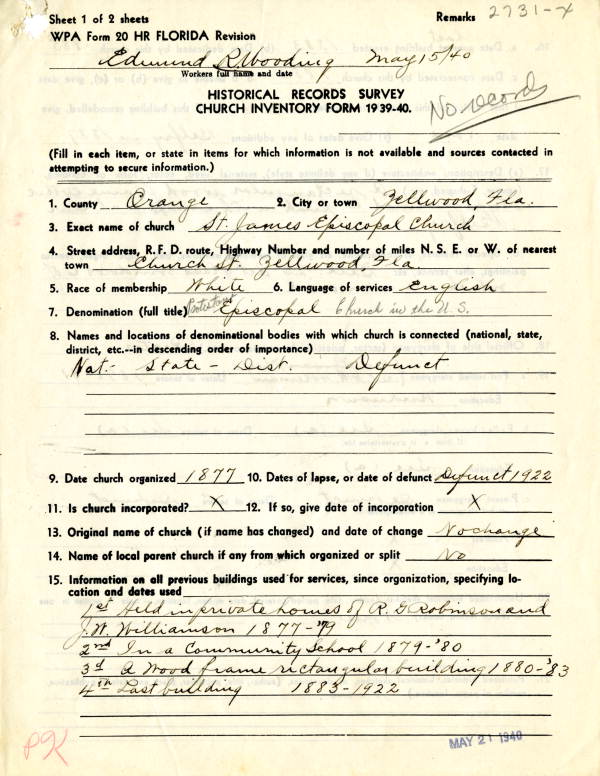 Sheet 1 of 2 sheets Remarks 2731-x
WPA Form 20 HR FLORIDA Revision
Edmund R. Wooding May 15/40
Workers full name and date
HISTORICAL RECORDS SURVEY
CHURCH INVENTORY FORM 1939-40.
No records
(Fill in each item, or state in items for which information is not available and sources contacted in
attempting to secure information.)
1. County Orange 2. City or town Zellwood, Fla.
3. Exact name of church St. James Episcopal Church
4. Street address, R. F. D. route, Highway Number and number of miles N. S. E. or W. of nearest
town Church St. Zellwood, Fla.
5. Race of membership White 6. Language of services English
7. Denomination (full title) Protestant Episcopal Church in the U.S.
8. Names and locations of denominational bodies with which church is connected (national, state,
district, etc.--in descending order of importance)
Nat.- State - Dist. Defunct
9. Date church organized 1877 10. Dates of lapse, or date of defunct Defunct 1922
11. Is church incorporated? X 12. If so, give date of incorporation X
13. Original name of church (if name has changed) and date of change No change
14. Name of local parent church if any from which organized or split No
15. Information on all previous buildings used for services, since organization, specifying lo-
cation and dates used
1st Held in private homes of R. G. Robinson and
J. W. Williamson 1877-'79
2nd In a Community School 1879-'80
3d A Wood frame rectangular building 1880-'83
4th Last building 1883-1922
PK
MAY 21 1940